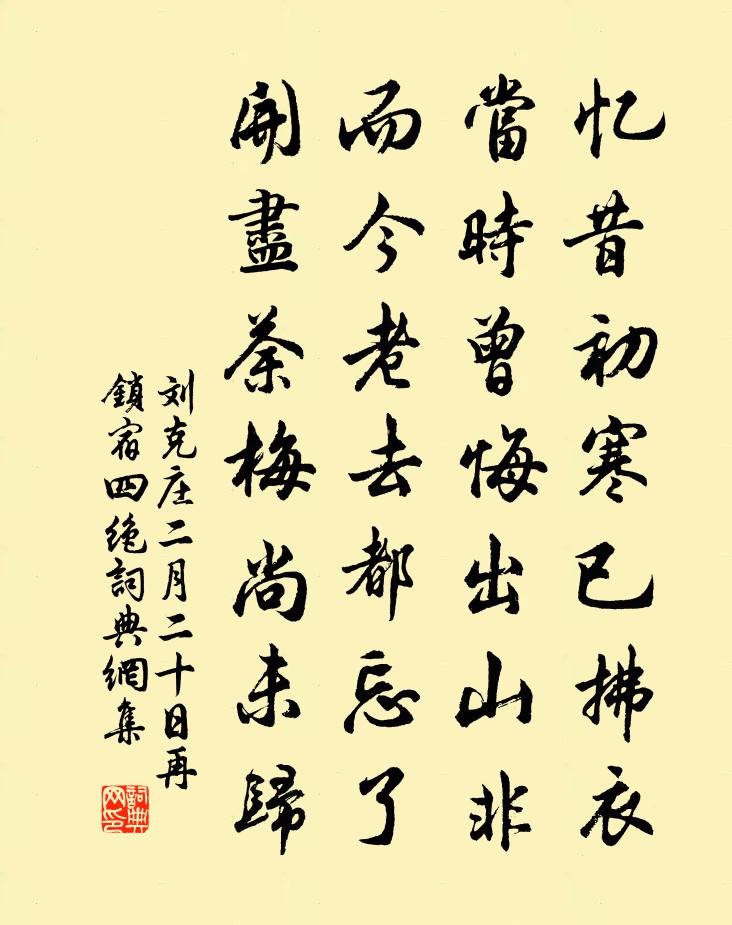 忆昔初寒已拂衣
當時曾悔出山非
而今老去都忘了
開盡茶梅尚未歸
刘克庄二月二十日再
鎖宿四绝詞典網集
詞典网印